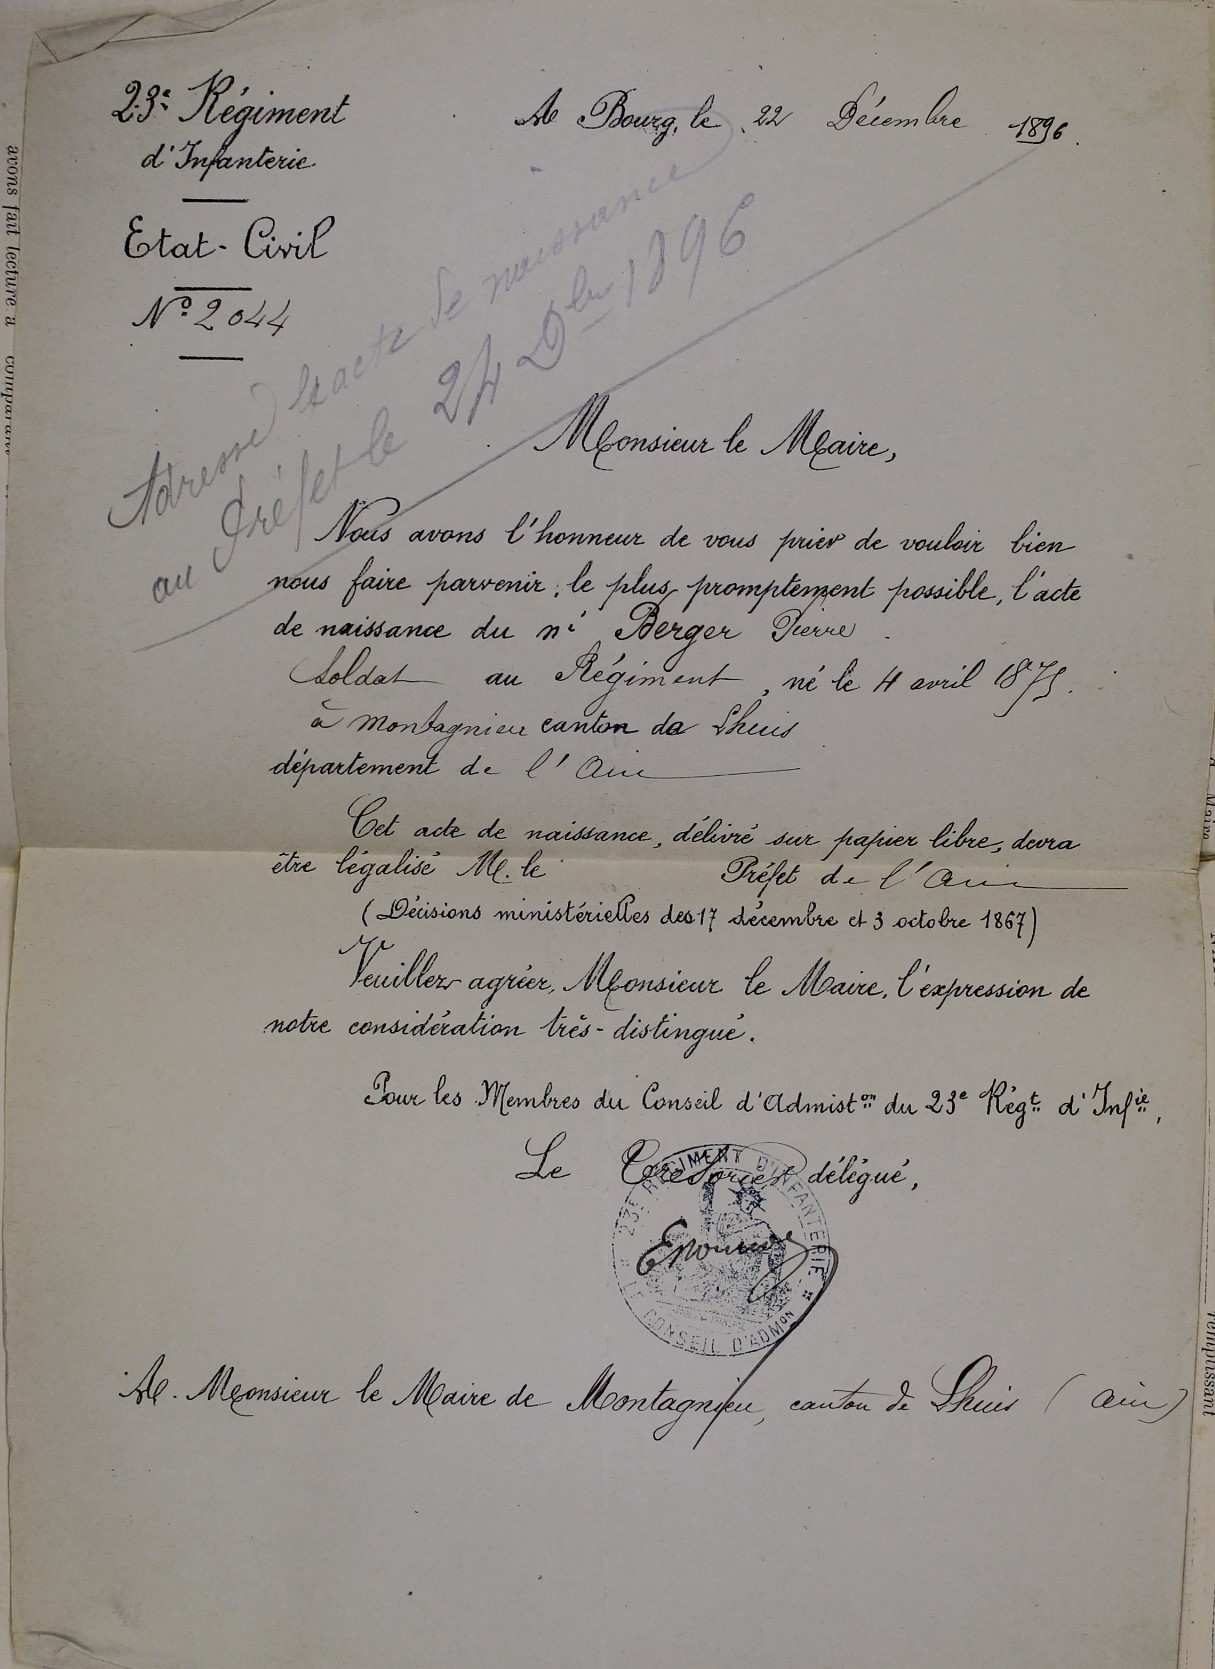 23e Régiment
d'Infanterie
Etat-Civil
No 2044
A Bourg, le 22 Décembre 1896.
Adressé l'acte de naissance
au Préfet le 24 Dbre 1896
Monsieur le Maire,
Nous avons l'honneur de vous prier de vouloir bien
nous faire parvenir, le plus promptement possible, l'acte
de naissance du né Berger Pierre
Soldat au Régiment, né le 4 avril 1875.
à Montagnieu canton de Lhuis
département de l'Ain
Cet acte de naissance, délivré sur papier libre, devra
être légalisé M. le Préfet de l'Ain
(Décisions ministérielles des 17 décembre et 3 octobre 1867)
Veuillez agréer, Monsieur le Maire, l'expression de
notre considération très-distingué.
Pour les Membres du Conseil d'Admiston du 23e Régt d'Infie,
Le Trésorier délégué,
23E REGIMENT D'INFANTERIE
LE CONSEIL D'ADMON
A. Monsieur le Maire de Montagnieu, canton de Lhuis (Ain)
avons fait lecture a comparant
remplissant